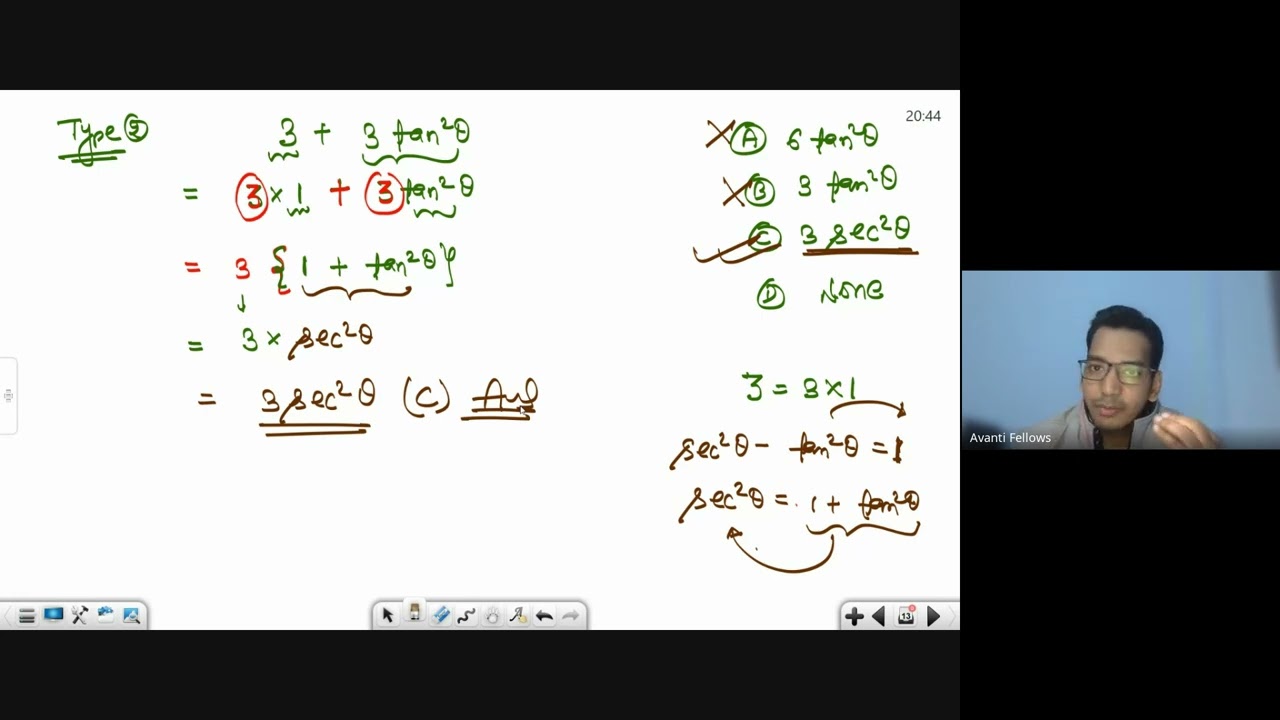 Type ②
3 + 3 tan²θ
= 3 × 1 + 3 tan²θ
= 3 { 1 + tan²θ }
= 3 × sec²θ
= 3 sec²θ (C) Ans
20:44
A 6 tan²θ
B 3 tan²θ
C 3 sec²θ
D None
3 = 3×1
sec²θ - tan²θ = 1
sec²θ = 1 + tan²θ
Avanti Fellows
13